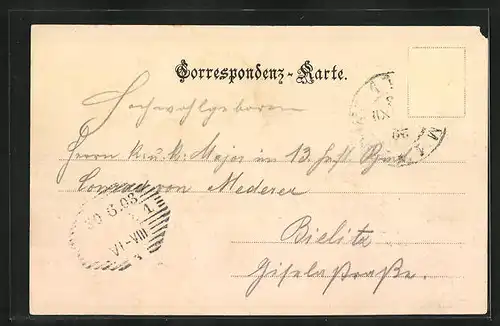 Correspondenz-Karte.
Hochwohlgeboren
Herrn k. u. k. Major im 13. Fest.
Conrad von Mederer
Bielitz
Giselastraße.
30.8.03
1
VI-VIII